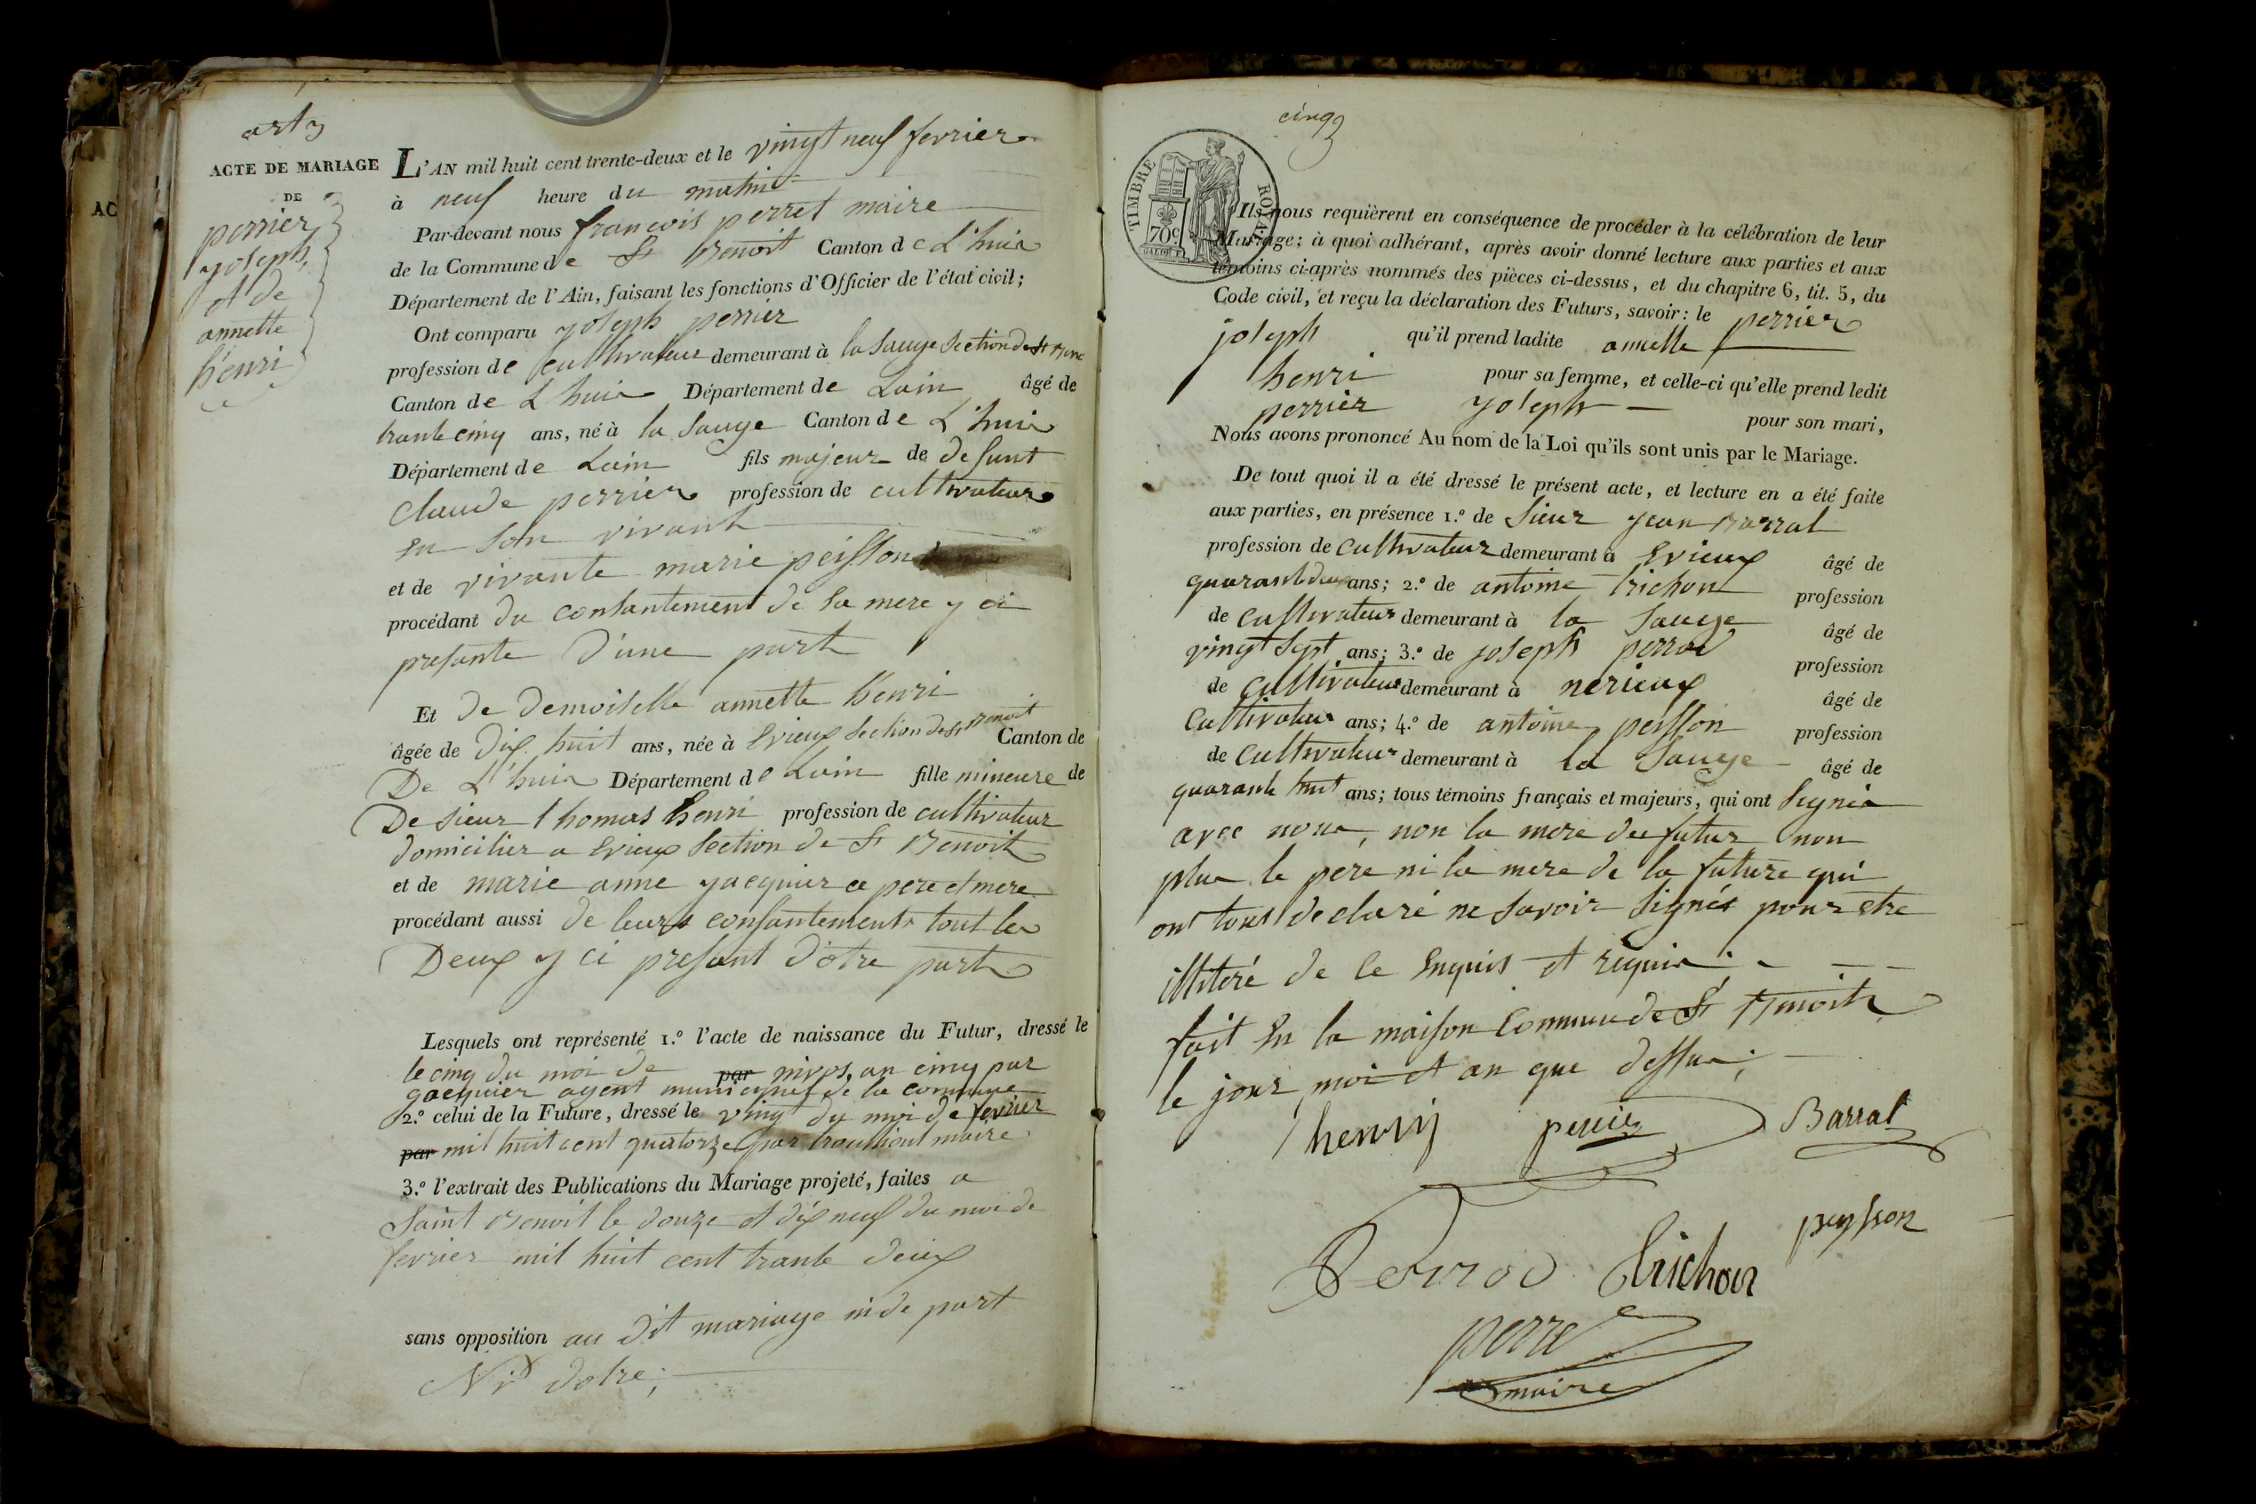 ACTE DE MARIAGE
DE
perrier
joseph
et de
annette
henri
L'AN mil huit cent trente-deux et le vingt neuf fevrier
à neuf heure du matin
Par-devant nous francois perret maire
de la Commune de St Benoit Canton de L'huis
Département de l'Ain, faisant les fonctions d'Officier de l'état civil;
Ont comparu joseph perrier
profession de cultivateur demeurant à la Sauge Section de St Bene
Canton de L'huis Département de Lain âgé de
trante cinq ans, né à la Sauge Canton de L'huis
Département de Lain fils majeur de defunt
Claude perrier profession de cultivateur
en Son vivant
et de vivante marie peisson
procédant du consantement de Sa mere y ci
presante D'une part
Et de demoiselle annette henri
âgée de Dix huit ans, née à Evieux Section de St Benoit Canton de
De L'huis Département de Lain fille mineure de
De Sieur thomas henri profession de cultivateur
domicilier a Evieux Section de St Benoit
et de marie anne jacquier ce pere et mere
procédant aussi de leurs consantements tout les
Deux y ci present d'otre part
Lesquels ont représenté 1.º l'acte de naissance du Futur, dressé le
le cinq du moi de par nivos, an cinq par
jacquier agent municipal de la commune
2.º celui de la Future, dressé le vingt du moi de fevrier
par mil huit cent quatorze par maire
3.º l'extrait des Publications du Mariage projeté, faites a
Saint Benoit le douze et dix neuf du moi de
fevrier mil huit cent trante deux
sans opposition au Dit mariage ni de part
Ni Dotre;
cinq
TIMBRE ROYAL
70c
Ils nous requièrent en conséquence de procéder à la célébration de leur
Mariage; à quoi adhérant, après avoir donné lecture aux parties et aux
témoins ci-après nommés des pièces ci-dessus, et du chapitre 6, tit. 5, du
Code civil, et reçu la déclaration des Futurs, savoir: le perrier
joseph qu'il prend ladite annette
henri pour sa femme, et celle-ci qu'elle prend ledit
perrier joseph pour son mari,
Nous avons prononcé Au nom de la Loi qu'ils sont unis par le Mariage.
De tout quoi il a été dressé le présent acte, et lecture en a été faite
aux parties, en présence 1.º de Sieur jean Barral
profession de Cultivateur demeurant à Evieux âgé de
quarante deux ans; 2.º de antoine trichon profession
de Cultivateur demeurant à la Sauge âgé de
vingt Sept ans; 3.º de joseph perrod profession
de Cultivateur demeurant à nerieux âgé de
Cultivateur ans; 4.º de antoine peisson profession
de Cultivateur demeurant à la Sauge âgé de
quarante huit ans; tous témoins français et majeurs, qui ont Signés
avec nous, non la mere du futur non
plus le pere ni la mere de la future qui
ont tous declaré ne Savoir Signés pour etre
illiteré de ce Enquis et requis
fait En la maison Commune de St Benoit
le jour, moi et an que dessus;
henry perrier Barral
peysson
Perrod trichon
perret
maire